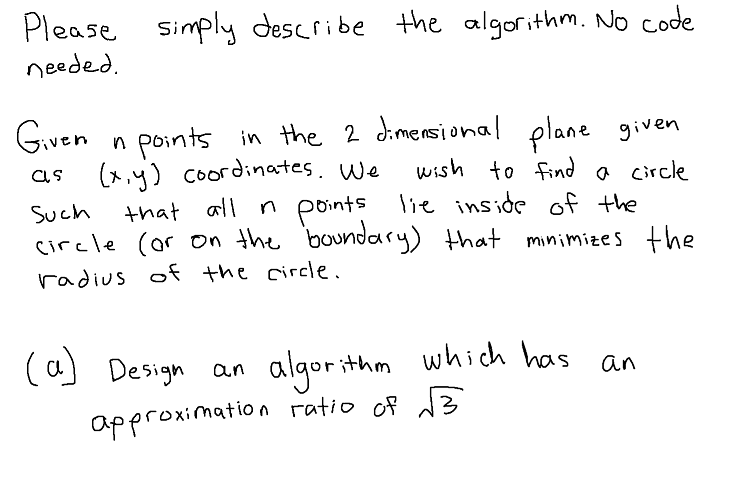 Please simply describe the algorithm. No code
needed.
Given n points in the 2 dimensional plane given
as (x,y) coordinates. We wish to find a circle
such that all n points lie inside of the
circle (or on the boundary) that minimizes the
radius of the circle.
(a) Design an algorithm which has an
approximation ratio of √3